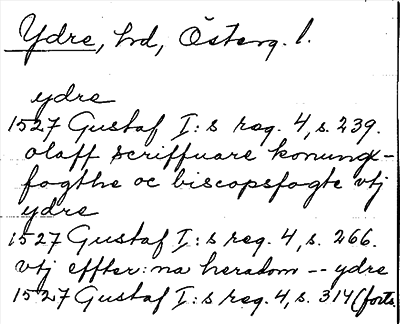 Ydre, hd, Österg. l.
ydre
1527 Gustaf I:s reg. 4, s. 239.
olaff scriffuare konungx-
fogthe oc biscopsfogte vtj
ydre
1527 Gustaf I:s reg. 4, s. 266.
vtj effter:na heradom -- ydre
1527 Gustaf I:s reg. 4, s. 314 (forts.